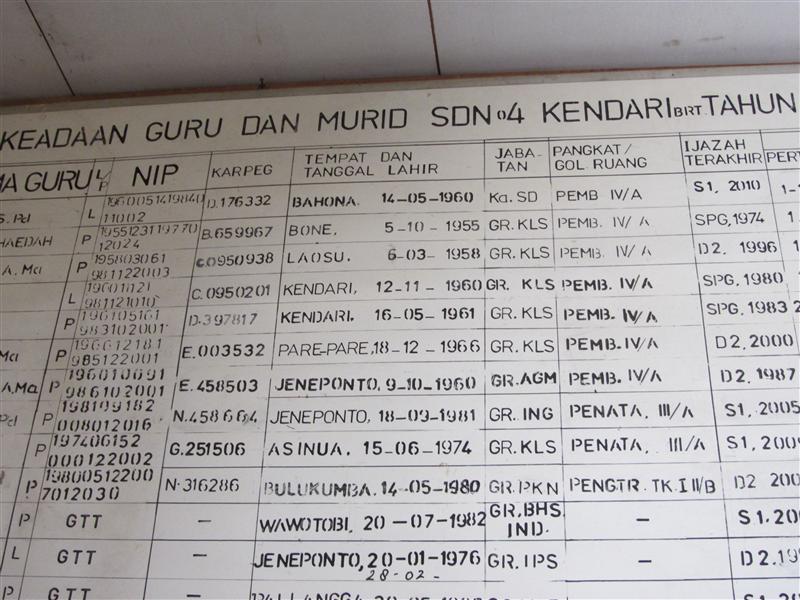 KEADAAN GURU DAN MURID SDN 04 KENDARI BRT. TAHUN
MA GURU L/P NIP KARPEG TEMPAT DAN TANGGAL LAHIR JABA-TAN PANGKAT/GOL RUANG IJAZAH TERAKHIR PER
S. Pd L 1960051419840 11002 D.176332 BAHONA. 14-05-1960 Ka. SD PEMB IV/A S1, 2010 1-
HAEDAH P 19551231 19770 12024 B.659967 BONE, 5-10-1955 GR. KLS PEMB. IV/A SPG, 1974 1
A. Ma P 195803061 981122003 C.0950938 LAOSU. 6-03-1958 GR. KLS PEMB. IV/A D2. 1996
L 981121010 C.0950201 KENDARI, 12-11-1960 GR. KLS PEMB. IV/A SPG, 1980
P 196105161 983102001 D.397817 KENDARI. 16-05-1961 GR. KLS PEMB. IV/A SPG, 1983 2
Ma P 196612181 985122001 E.003532 PARE-PARE, 18-12-1966 GR. KLS PEMB. IV/A D2, 2000
A. Ma P 196010091 986102001 E.458503 JENEPONTO, 9-10-1960 GR. AGM PEMB. IV/A D2. 1987
Pd P 198109182 008012016 N.458664 JENEPONTO, 18-09-1981 GR. ING PENATA, III/A S1, 2005
P 197406152 000122002 G.251506 ASINUA. 15-06-1974 GR. KLS PENATA, III/A S1, 200
P 19800512200 7012030 N.316286 BULUKUMBA. 14-05-1980 GR. PKN PENGTR. TK. I II/B D2 200
P GTT — WAWOTOBI, 20-07-1982 GR. BHS. IND. — S1. 20
L GTT — JENEPONTO, 20-01-1976 GR. IPS — D2. 19
28-02-
P GTT —